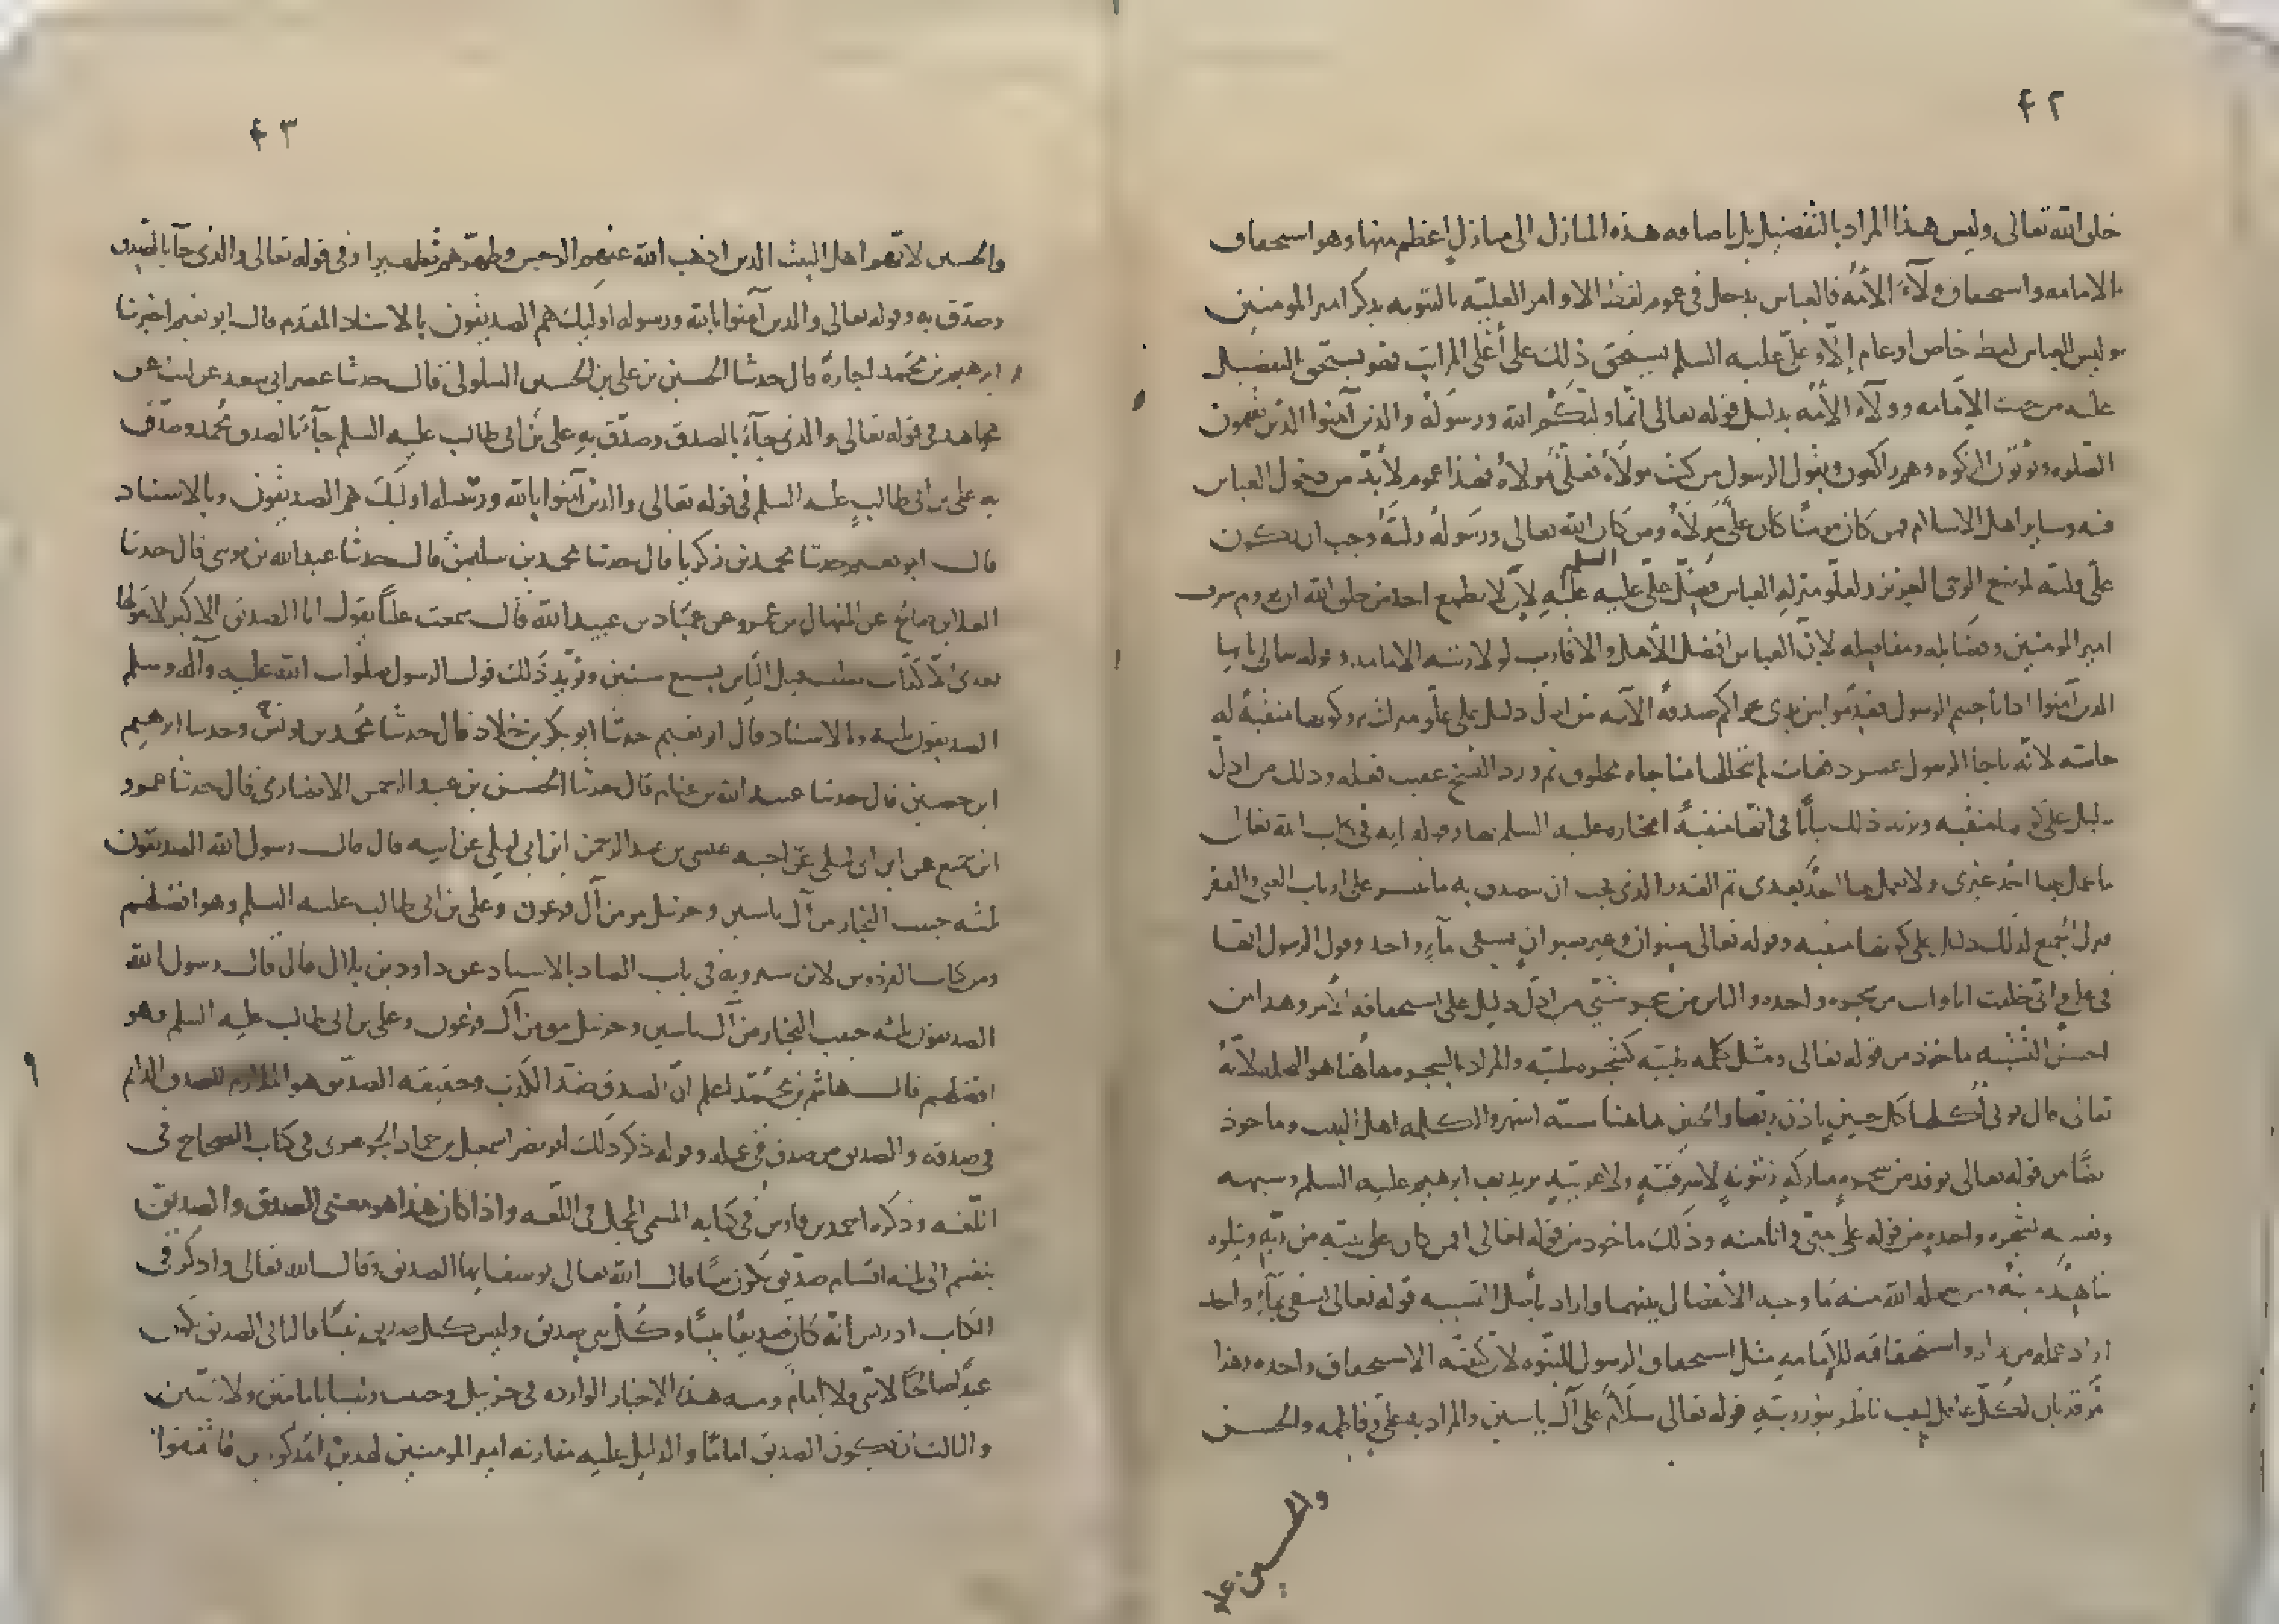 ٤٢
خلق الله تعالى وليس هذا المراد بالتفضيل بل باضافه هذه المنازل الى منازل اعظم منها وهو استحقاق
الامامه واستحقاق ولآء الأمّه فالعباس يدخل في عموم لفظ الاوامر العليّه بالتنويه بذكر امير المومنين
وليس للعباس لفظ خاص او عام إلّا وعليّ عليه السلم يستحق ذلك على أعلى المراتب فهو يستحق التفضيل
عليه من حيث الإمامه وولآء الأمّه بدليل قوله تعالى انّما وليّكم الله ورسوله والذين آمنوا الذين يقيمون
الصّلوه ويؤتون الزكوه وهم راكعون وبقول الرسول من كنت مولاهُ فعليّ مولاهُ فهذا عموم لا بدّ من دخول العباس
فيه وساير اهل الاسلام فمن كان مومنًا كان عليّ مَولاهُ ومن كان الله تعالى ورسوله وليّه وجب ان يكون
عليّ وليّه
لا يطمع احد من خلق الله ان يروم شرف
امير المومنين وفضايله ومفاضله لانّ العباس افضل الأهل والاقارب لولا رتبه الامامه وقوله تعالى يا ايها
الذين آمنوا اذا ناجيتم الرسول فقدّموا بين يدي نجواكم صدقةً الآيه من ادلّ دليل على علو منزلته وكونها منقبةً له
خاصّه لانّه ناجا الرسول عشر دفعات لم يتخللها مناجاه مخلوق ثم ورد النسخ عقيب فعله وذلك من ادلّ
دليل على
ما عمل بها احدٌ غيري ولا يعمل بها احدٌ بعدي ثم القدر الذي يجب ان يتصدق به ما يتسر على ارباب الغنى والفقر
دليل على كونها منقبه وقوله تعالى صنوان وغير صنوان يسقى بمآءٍ واحد وقول الرسول ايضا
في عليّ انّي خلقت انا وانت من شجره واحده والناس من شجر شتّى من ادلّ دليل على استحقاقه الأمر وهذا من
احسن التشبيه ماخوذ من قوله تعالى ومثل كلمه طيبّه كشجره طيبّه والمراد بالشجره هاهُنا هو العلم لانّهُ
تعالى قال توتي أُكلها كل حينٍ باذن ربّها والحين هاهنا ستّه اشهر والكلمه اهل البيت وماخوذ
ايضًا من قوله تعالى يوقد من شجرهٍ مباركهٍ زيتونهٍ لا شرقيّهٍ ولا غربيّهٍ يريد به ابرهيم عليه السلم وشبهه
ونفسه بشجره واحدهٍ من قوله عليّ منّي وانا منه وذلك ماخوذ من قوله تعالى افمن كان على بيّنه من ربّه ويتلوه
شاهدٌ منهُ
اراد
من قد بان لكلّ عاقل لبيب ناظر بنور ربّهِ قوله تعالى سلامٌ على آل ياسين والمراد به عليّ وفاطمه والحسن
والحسين
٤٣
والحسين لانّهم اهل البيت الذين اذهب الله عنهم الرجس وطهّرهم تطهيرا وفي قوله تعالى والذي جآء بالصدق
وصدّق به وقوله تعالى والذين آمنوا بالله ورسوله اوليك هم الصديقون بالاسناد المقدم قال ابو نعيم اخبرنا
ابرهيم بن محمد اجازةً قال حدثنا الحسين بن علي بن الحسين السلولي قال حدثنا عن ليث عن
مجاهد في قوله تعالى والذي جآء بالصدق وصدّق بهِ علي بن ابي طالب عليه السلم جآء بالصدق محُمد وصدّق
به علي بن ابي طالب عليه السلم في قوله تعالى والذين آمنوا بالله ورسله اوليك هم الصديقون وبالاسناد
قال ابو نعيم حدثنا محمد بن زكريا قال حدثنا محمد بن سليمن قال حدثنا عبد الله بن موسى قال حدثنا
العلا بن صالح عن المنهال بن عمرو عن عبّاد بن عبيد الله قال سمعت عليًّا يقول انا الصديق الاكبر لا يقولها
بعدي الّا كذّاب صليت قبل النّاس بسبع سنين ويؤيّد ذلك قول الرسول صلوات الله عليه وآله وسلم
الصديقون ثلثه وبالاسناد قال ابو نعيم حدثنا ابو بكر بن خلاد قال حدثنا محُمد بن يونس وحدثنا ابرهيم
ابن حصين قال حدثنا عبيد الله بن غنام قال حدثنا الحسن بن عبد الرحمن الانصاري قال حدثنا عمرو
ابن جميع عن ابن ابي ليلى عن اخيه عيسى بن عبد الرحمن ابن ابي ليلى عن ابيه قال قال رسول الله الصديقون
ثلثه حبيب النجار من آل ياسين وحزبيل مومن آل فرعون وعلي بن ابي طالب عليه السلم وهو افضلهم
ومن كتاب الفردوس لابن شيرويه في باب الصاد بالاسناد عن داود بن بلال قال قال رسول الله
الصديقون ثلثه حبيب النجار من آل ياسين وحزبيل مومن آل فرعون وعلي بن ابي طالب عليه السلم وهو
افضلهم قال هاشم بن محُمّد اعلم انّ الصدق ضدّ الكذب وحقيقه الصدّيق هو الملازم للصدق الدائم
في صدقه والصديق من صدق في عمله وقوله ذكر ذلك ابو نصر اسمعيل بن حماد الجوهري في كتاب الصحاح في
اللّغه وذكره احمد بن فارس في كتابه المسمى المجمل في اللّغه واذا كان هذا هو معنى الصدق والصديق
ينقسم الى ثلثه اقسام صدّيق يكون نبيًّا قال الله تعالى يوسف ايها الصديق وقال الله تعالى واذكر في
الكتاب ادريس انّه كان صديقًا نبيًّا وكُلّ نبي صديق وليس كل صديق نبيًّا والثاني الصديق يكون
عبدًا صالحًا لا نبي ولا إمامٌ ومنه هذه الاخبار الوارده في حزبيل وحبيب وليسا بامامين ولا نبيّين
والثالث ان يكون الصديق امامًا والدليل عليه مقارنه امير المومنين لهذين المذكورين